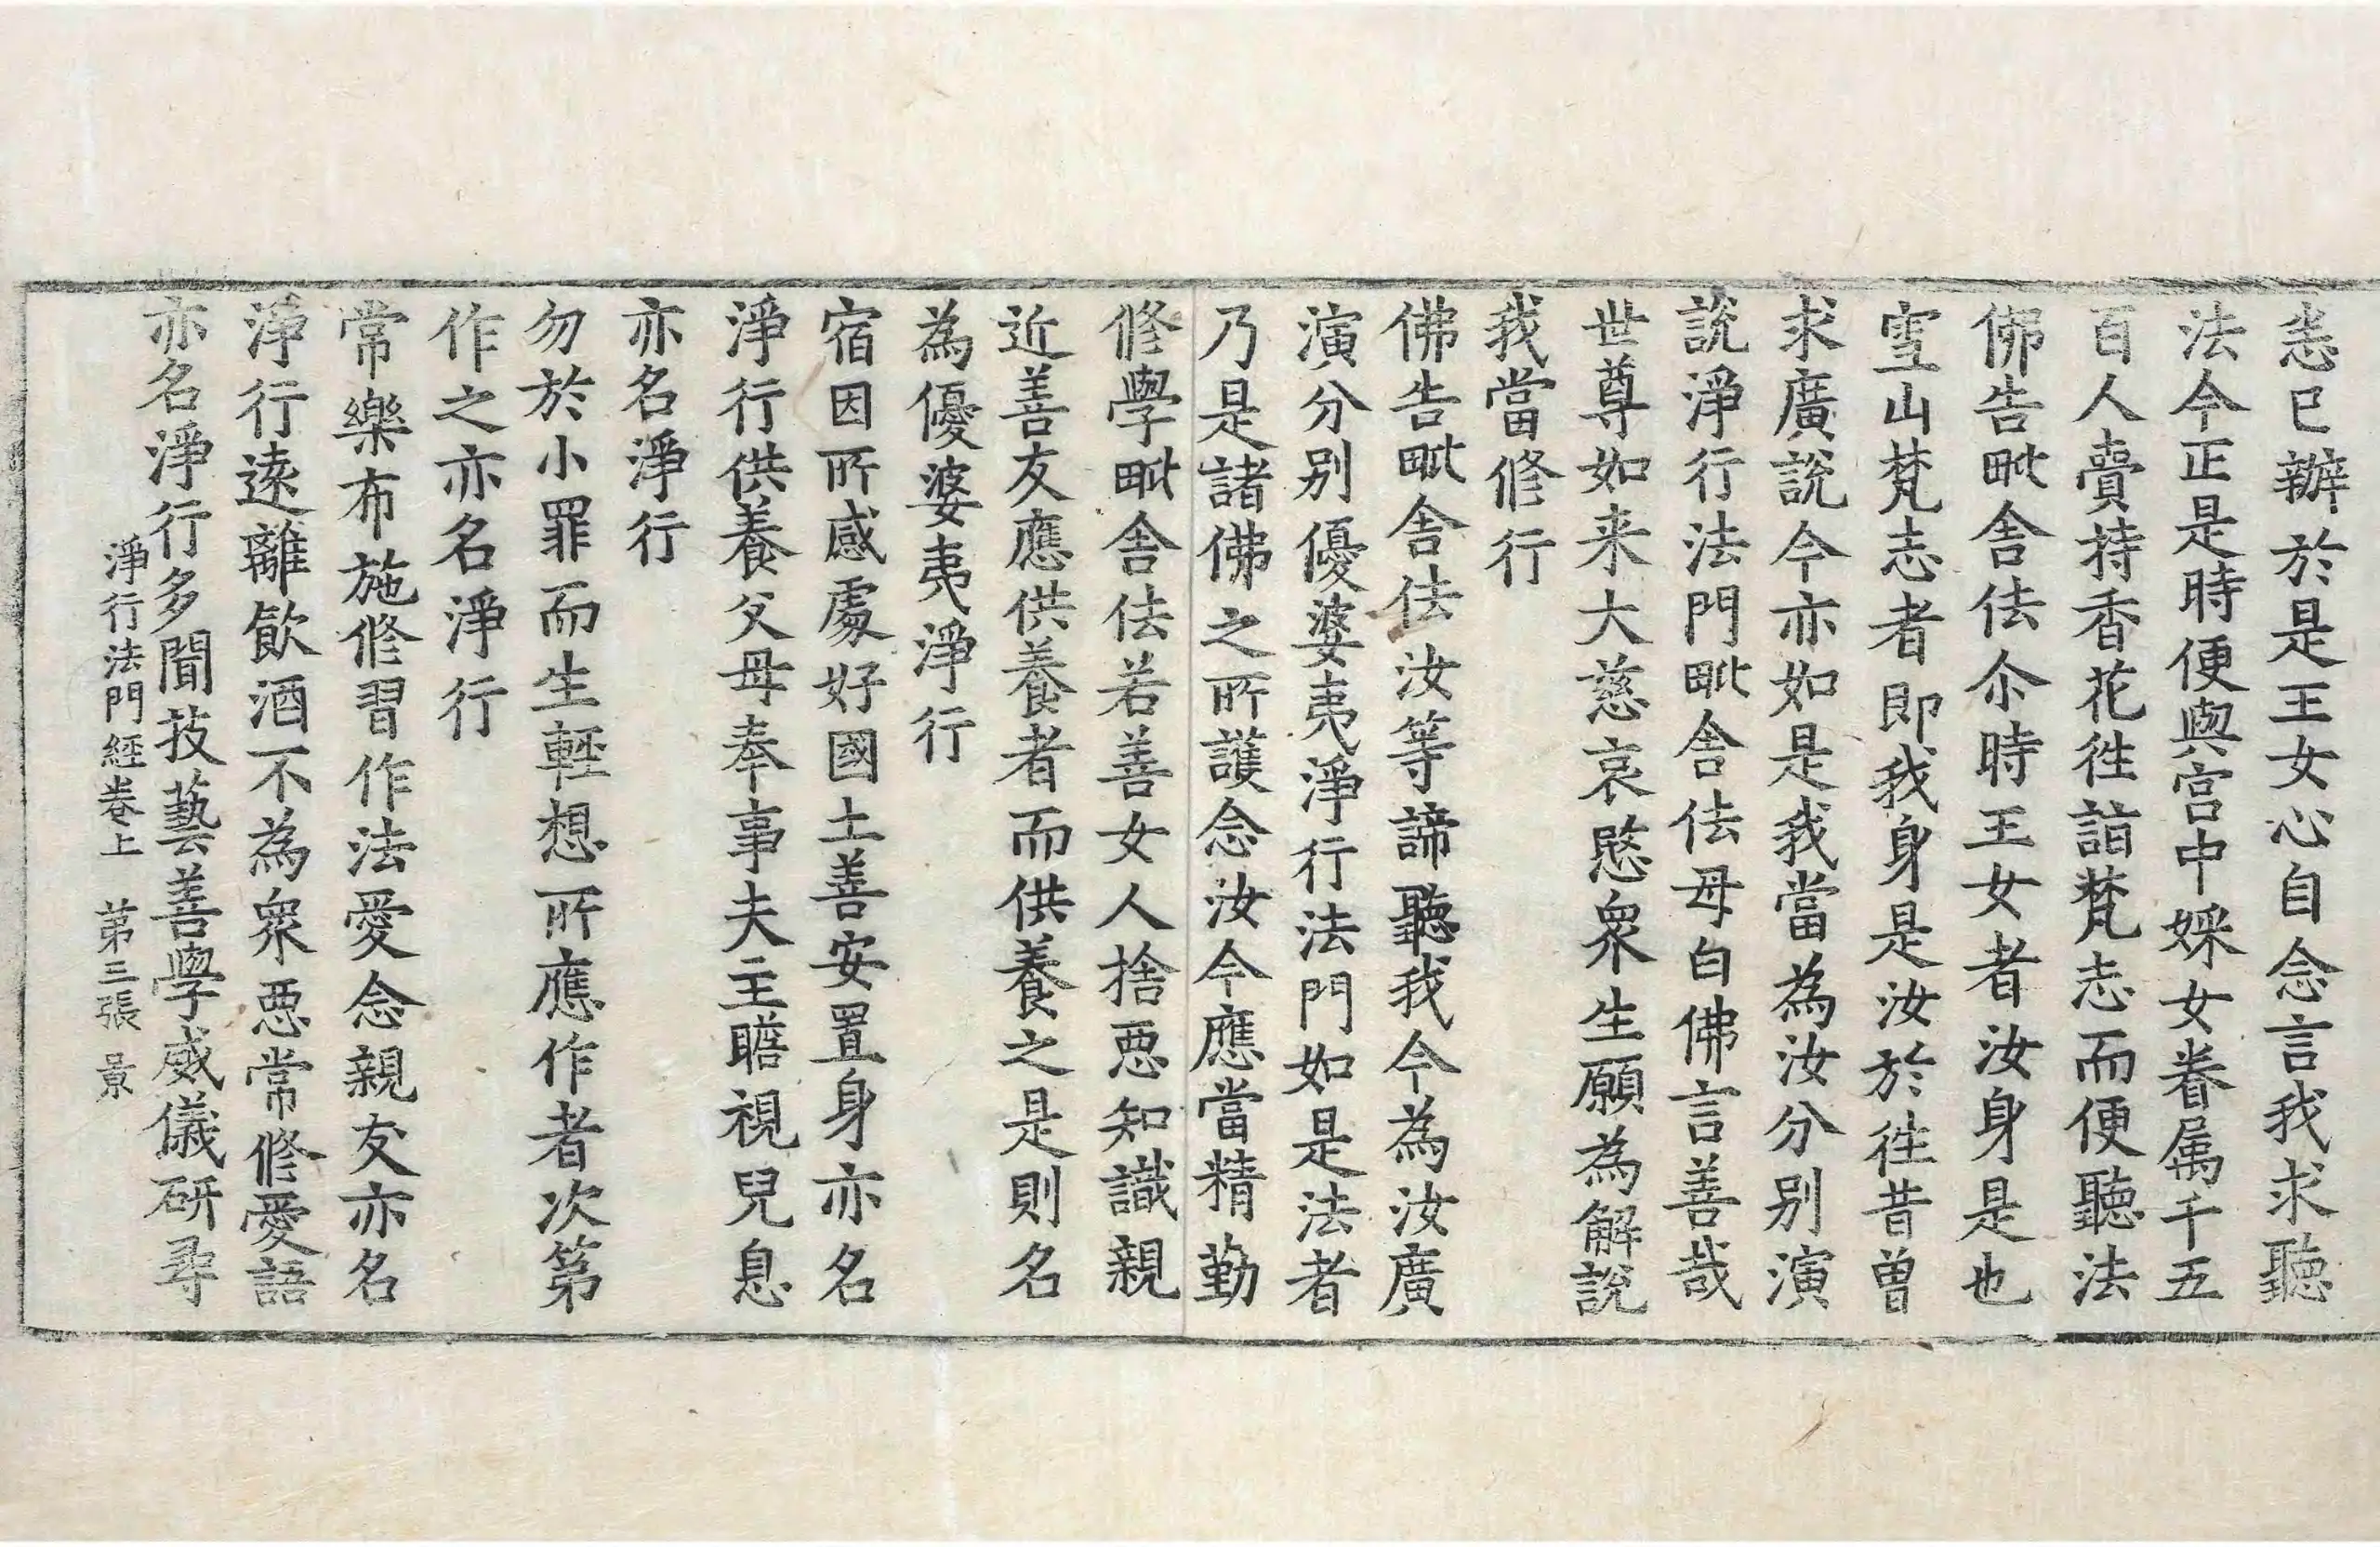 恚已辦於是王女心自念言我求聽
法今正是時便與宮中婇女眷属千五
百人賷持香花徃詣梵志而便聽法
佛告毗舍佉尒時王女者汝身是也
雪山梵志者即我身是汝於徃昔曽
求廣說今亦如是我當為汝分别演
說淨行法門毗舍佉母白佛言善哉
世尊如来大慈哀愍衆生願為解說
我當修行
佛告毗舍佉汝等諦聽我今為汝廣
演分别優婆夷淨行法門如是法者
乃是諸佛之所護念汝今應當精勤
修學毗舍佉若善女人捨惡知識親
近善友應供養者而供養之是則名
為優婆夷淨行
宿因所感處好國土善安置身亦名
淨行供養父母奉事夫主瞻視兒息
亦名淨行
勿於小罪而生輕想所應作者次第
作之亦名淨行
常樂布施修習作法愛念親友亦名
淨行遠離飲酒不為衆惡常修愛語
亦名淨行多聞技藝善學威儀研尋
淨行法門經卷上 第三張 景